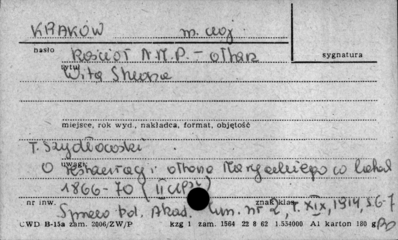 KRAKÓW m. woj.
hasło Kościół N.M.P. – ołtarz sygnatura
tytuł
Wita Stwosza
miejsce, rok wyd., nakładca, format, objętość
T. Szydłowski
uwagi
O restauracji ołtarza Maryackiego w latach
1866-70 (
nr inw. znak klas.
Spraw. Akad. Um. nr 2, t. XIX, 1914, s. 6-7
CWD B-15a zam. 2006/ZW/P kzg 1 zam. 1564 22 8 62 1.534000 A1 karton 180 g